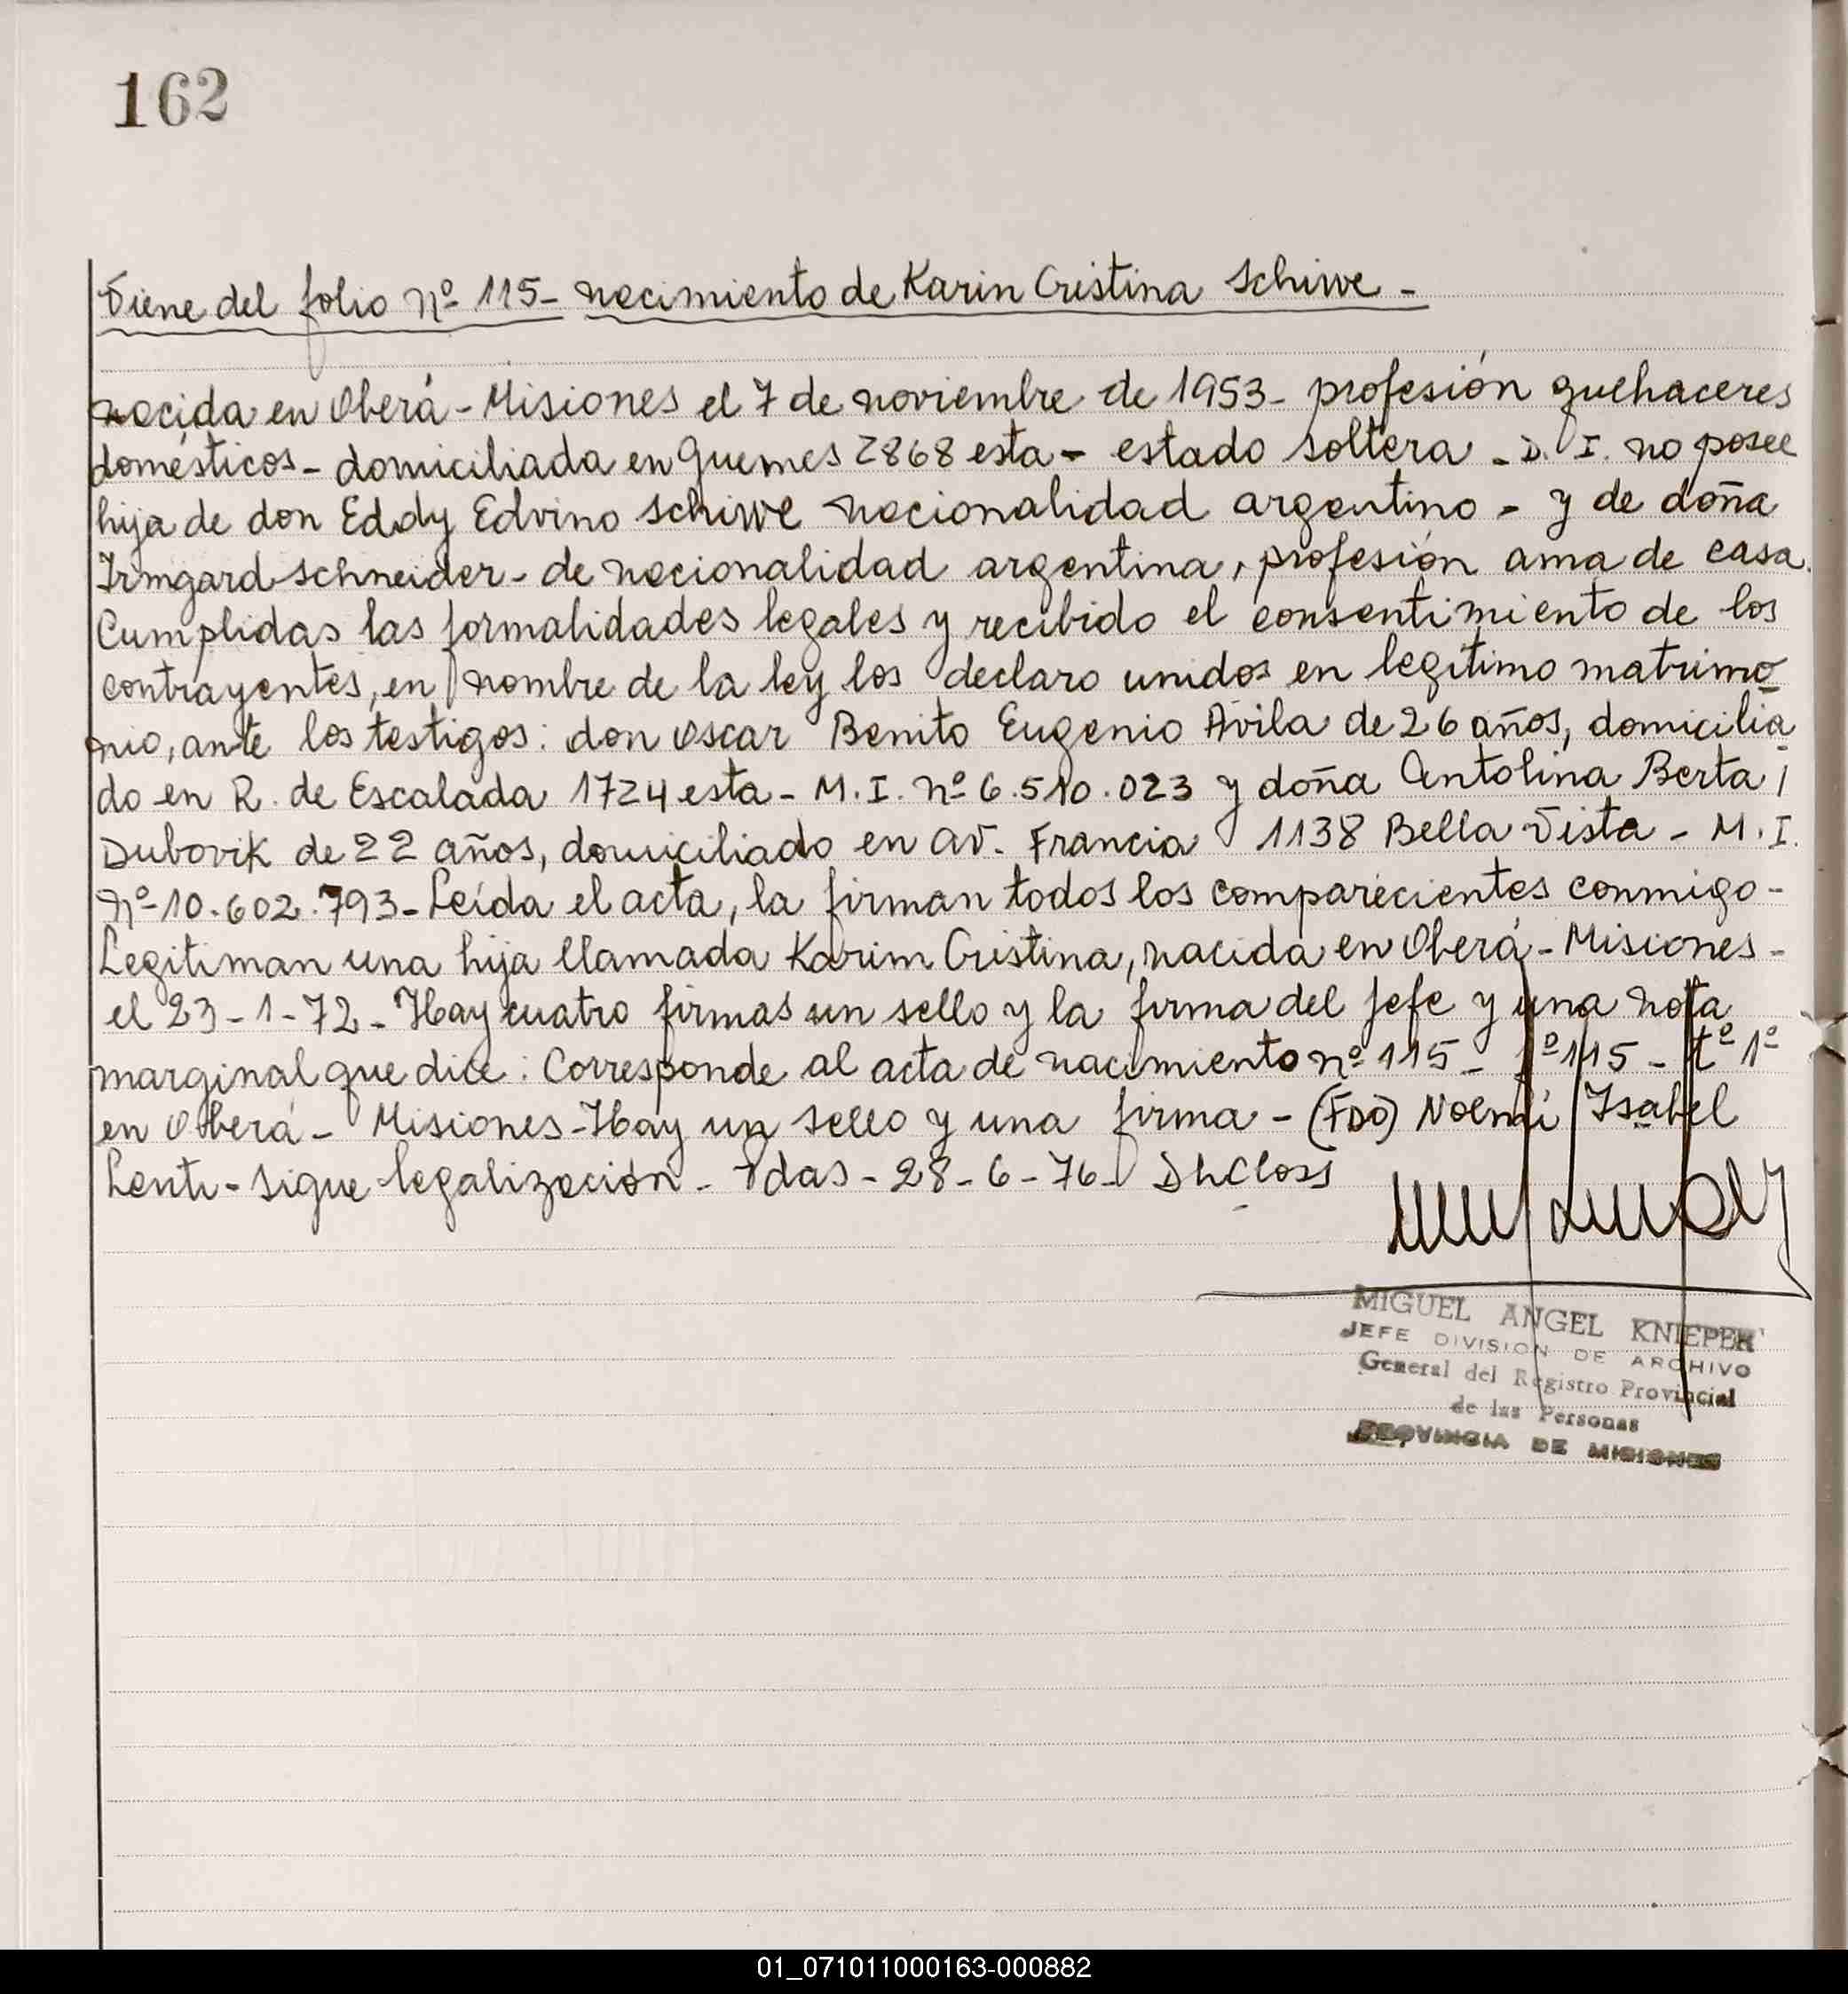 162
Viene del folio nº 115- nacimiento de Karin Cristina Schiwe -
nacida en Oberá - Misiones el 7 de noviembre de 1953 - profesión quehaceres
domésticos - domiciliada en Guemes 2868 esta - estado soltera - D. I. no posee
hija de don Eddy Edvino Schiwe nacionalidad argentino - y de doña
Irmgard Schneider - de nacionalidad argentina, profesión ama de casa.
Cumplidas las formalidades legales y recibido el consentimiento de los
contrayentes, en nombre de la ley los declaro unidos en legítimo matrimo
nio, ante los testigos: don Oscar Benito Eugenio Avila de 26 años, domicilia
do en R. de Escalada 1724 esta - M. I. nº 6.510.023 y doña Antolina Berta
Dubovik de 22 años, domiciliado en Av. Francia 1138 Bella Vista - M. I.
nº 10.602.793 - Leída el acta, la firman todos los comparecientes conmigo -
Legitiman una hija llamada Karim Cristina, nacida en Oberá - Misiones -
el 23-1-72 - Hay cuatro firmas un sello y la firma del jefe y una nota
marginal que dice: Corresponde al acta de nacimiento nº 115 - fº 115 - tº 1º
en Oberá - Misiones - Hay un sello y una firma - (FDO) Noemí Isabel
Lenti - sigue legalización - Pdas - 28-6-76 - DhCloss
MIGUEL ANGEL KNIEPER
JEFE DIVISION DE ARCHIVO
General del Registro Provincial
de las Personas
PROVINCIA DE MISIONES
01_071011000163-000882